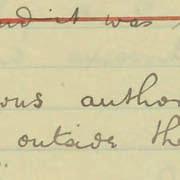 and it was
ous author
outside the